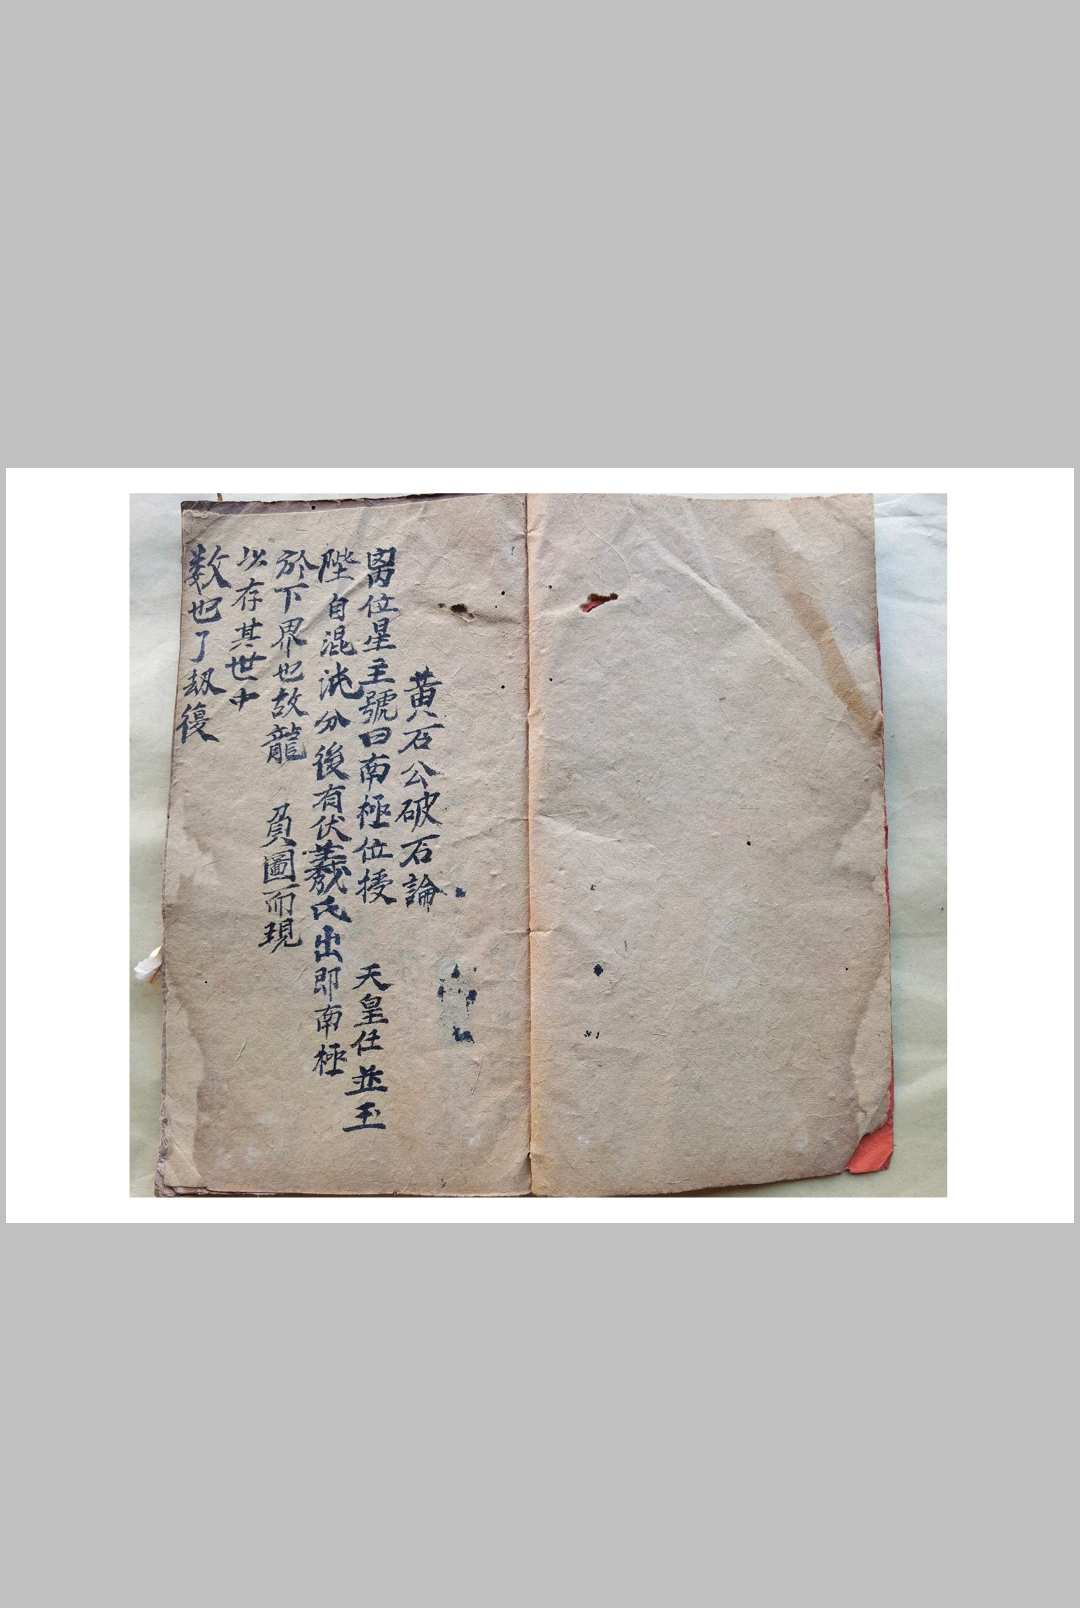 黃石公破石論
位星主號曰南極位授 天皇任並玉
陛自混沌分後有伏羲氏出即南極
於下界也故龍 負圖而現
以存其世中
数也了劫復